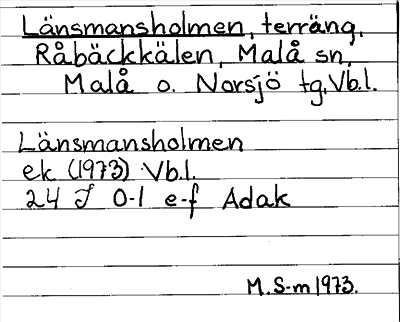 Länsmansholmen, terräng,
Råbäckkälen, Malå sn,
Malå o. Norsjö tg. Vb.l.
Länsmansholmen
ek (1973) Vb.l.
24 J 0-1 e-f Adak
M. S-m 1973.